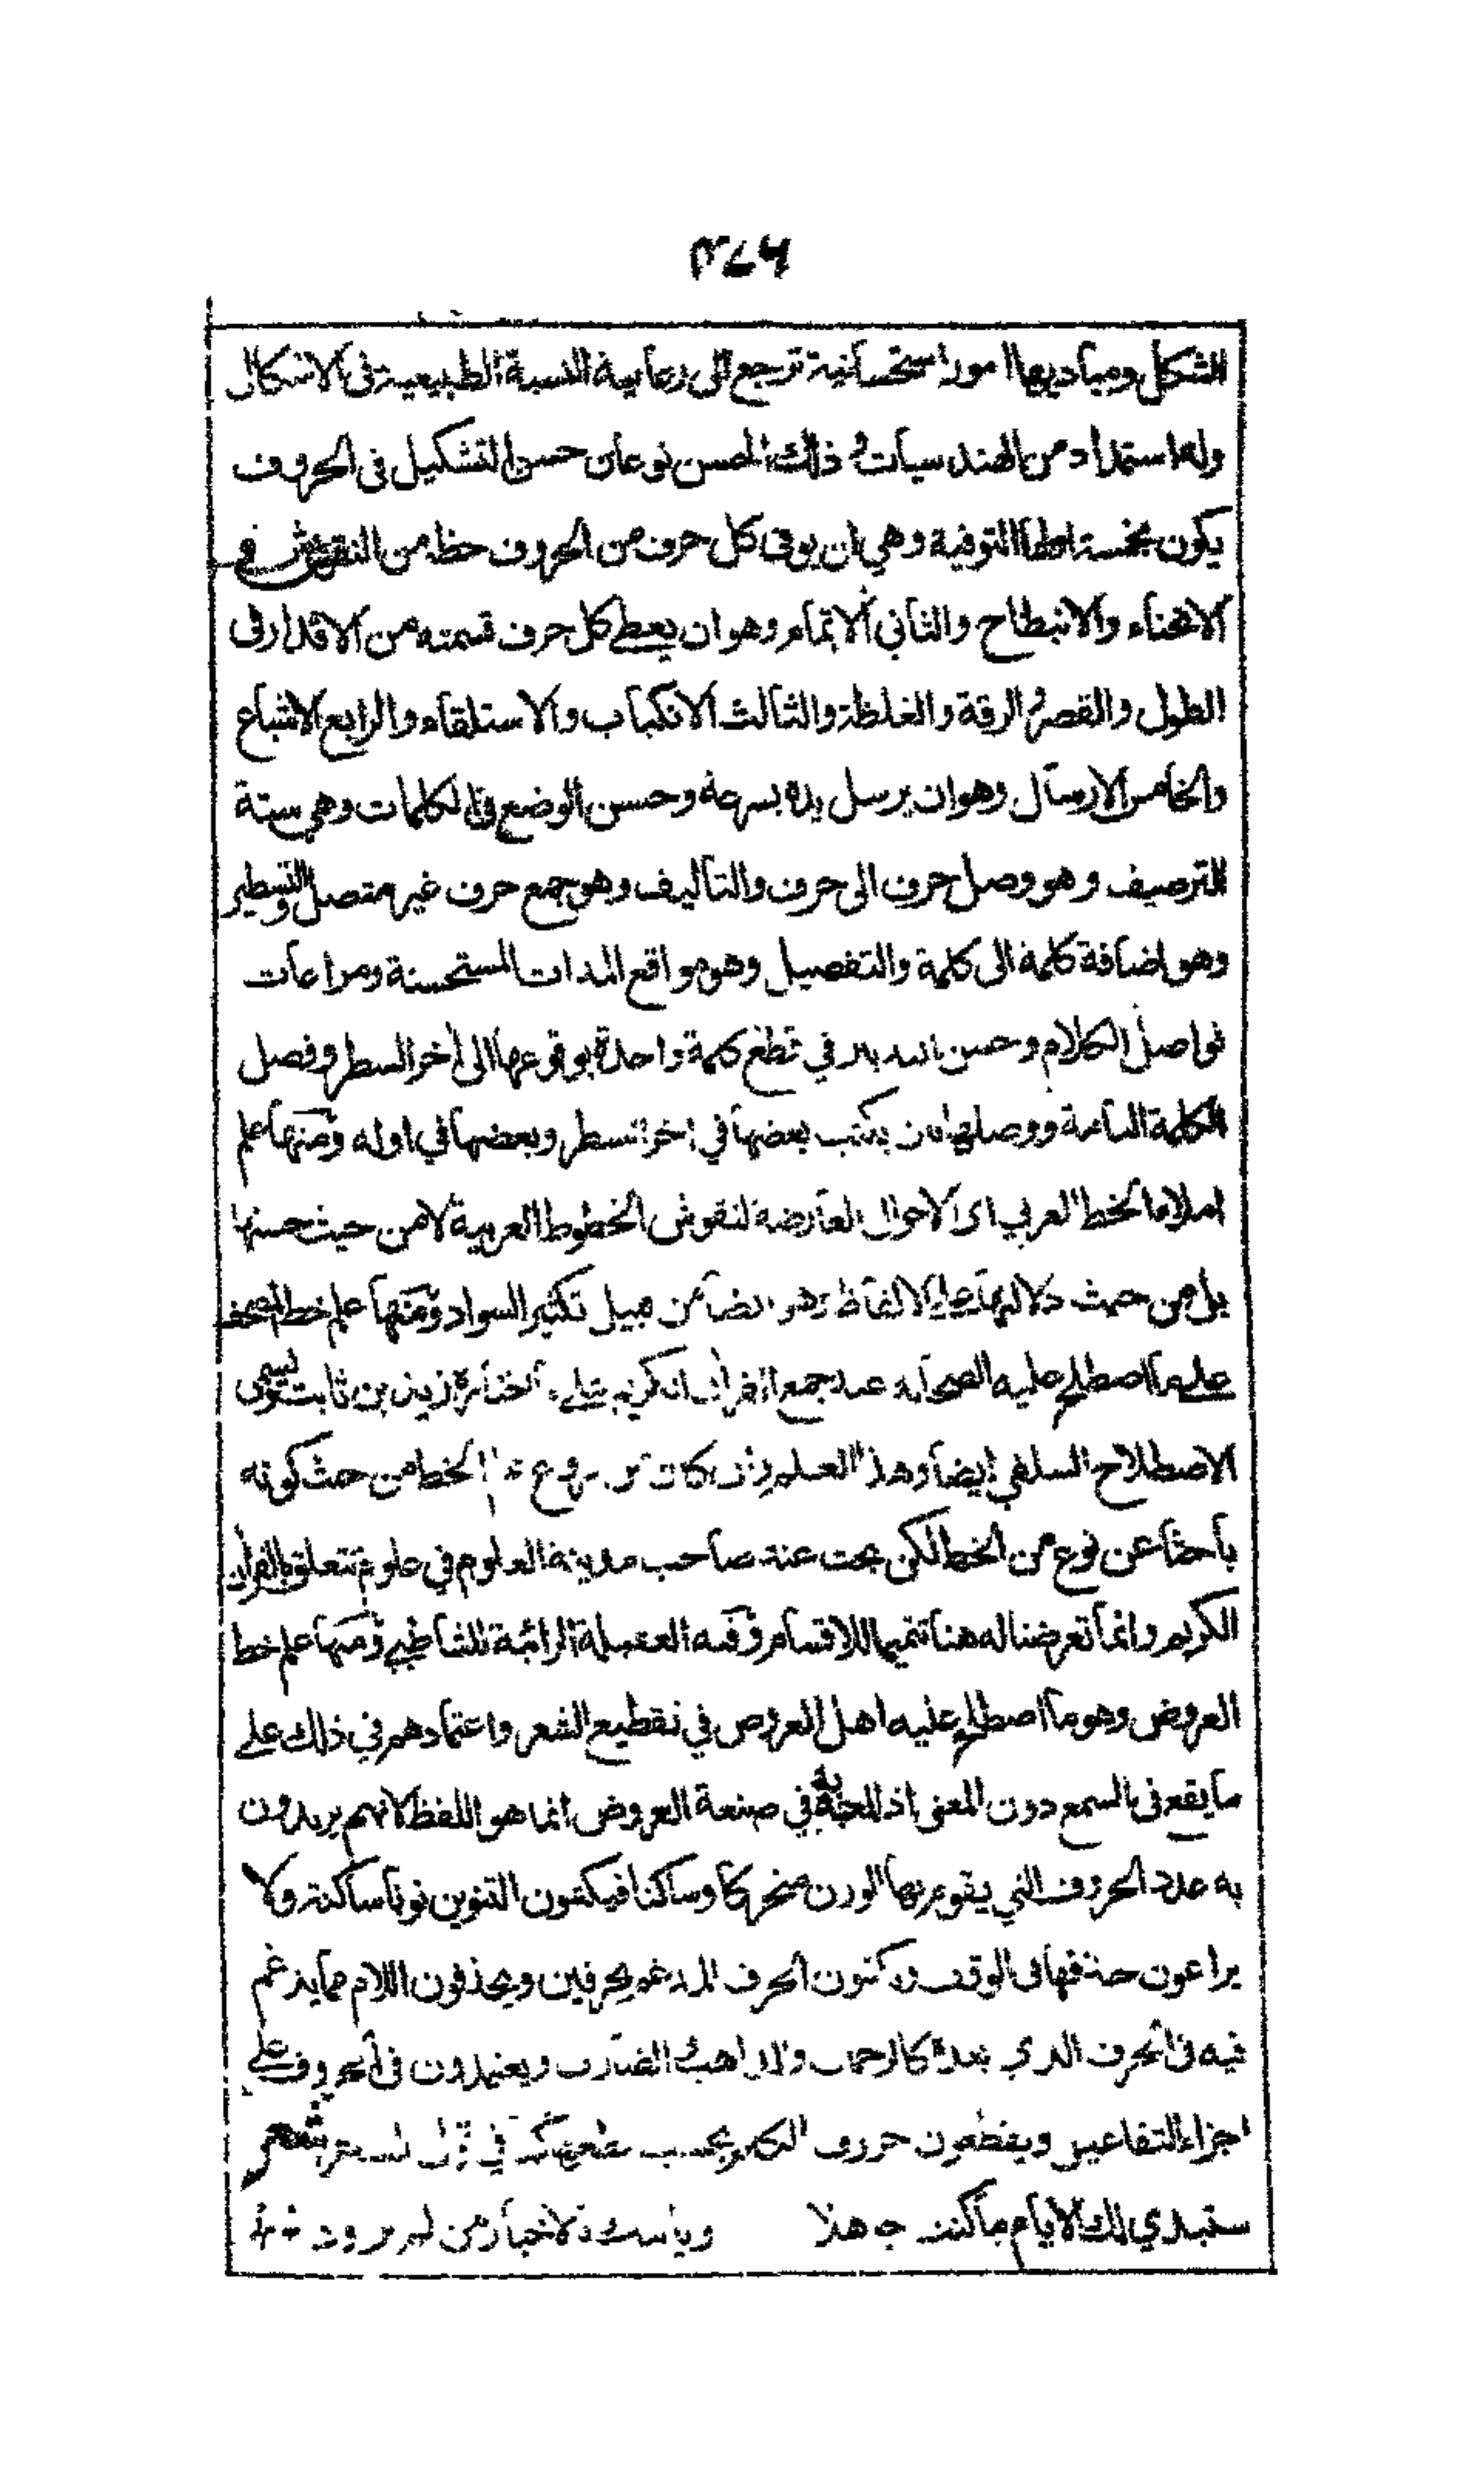 ٣٧٦
الشكل ومباديها امور استحسانية ترجع الى رعاية النسبة الطبيعية فى الاشكال
وله استمداد من الهندسيات و ذلك الحسن نوعان حسن التشكيل فى الحروف
يكون بخمسة اولها التوفية وهي ان يوفى كل حرف من الحروف حظه من النقوش فى
الانحناء والانبطاح والثاني الاتمام وهو ان يعطى كل حرف قسمته من الاقدار فى
الطول والقصر و الرقة والغلظة والثالث الانكباب والاستلقاء والرابع الاشباع
والخامس الارسال وهو ان يرسل يده بسرعة وحسن الوضع فى الكلمات وهي ستة
الترصيف وهو وصل حرف الى حرف والتاليف وهو جمع حرف غير متصل والتسطير
وهو اضافة كلمة الى كلمة والتفصيل وهو مواقع المدات المستحسنة ومراعات
فواصل الكلام وحسن التدبير في قطع كلمة واحدة بوقوعها الى أخر السطر وفصل
الكلمة التامة ووصلها بان يكتب بعضها في اخر السطر وبعضها في اوله ومنها علم
املاء الخط العربي اى الاحوال العارضة لنقوش الخطوط العربية لا من حيث حسنها
بل من حيث دلالتها على الالفاظ وهو ايضا من قبيل تكثير السواد ومنها علم خط المصحف
على ما اصطلح عليه الصحابة عند جمع القرأن الكريم على ما اختاره زيد بن ثابت يسمى
الاصطلاح السلفي ايضا وهذا العلم وان كان من فروع علم الخط من حيث كونه
باحثا عن نوع من الخط لكن بحث عنه صاحب مدينة العلوم في علوم تتعلق بالقرأن
الكريم وانما تعرضنا له هنا تتميما للاقسام وفيه العقيلة الرائية للشاطبي ومنها علم خط
العروض وهو ما اصطلح عليه اهل العروض في تقطيع الشعر واعتمادهم في ذلك على
ما يقع فى السمع دون المعنى اذ المعتد به في صنعة العروض انما هو اللفظ لانهم يريدون
به عدد الحروف التي يقوم بها الوزن متحركا وساكنا فيكتبون التنوين نونا ساكنة ولا
يراعون حذفها فى الوقف ويكتبون الحرف المدغم بحرفين ويحذفون اللام مما يدغم
فيه فى الحرف الذي بعده كالرحمن والذاهب و الضارب ويعتمدون فى الحروف على
اجزاء التفاعيل ويقطعون حروف الكلمة بحسب تقطيعها كما في قول الشاعر شعر
ستبدي لك الايام ما كنت جاهلا وياتيك بالاخبار من لم تزود